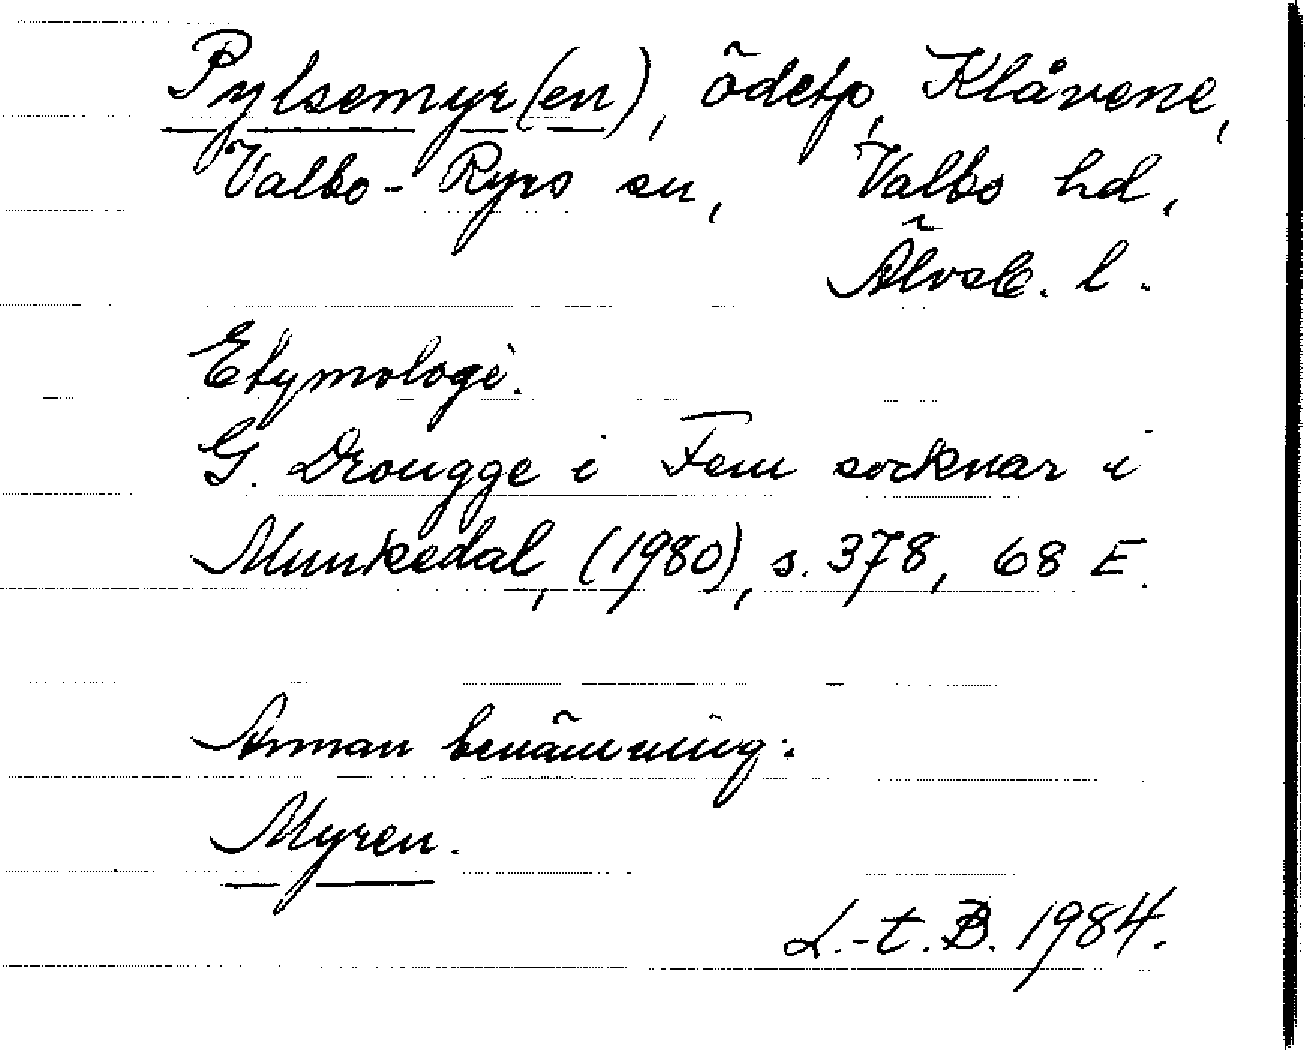 Pylsemyr(en), ödetp, Klåvene,
Valbo-Ryrs sn, Valbo hd,
Älvsb. l.
Etymologi.
G. Drougge i Fem socknar i
Munkedal, (1980), s. 378, 68 E.
Annan benämning:
Myren.
L.-t. B. 1984.